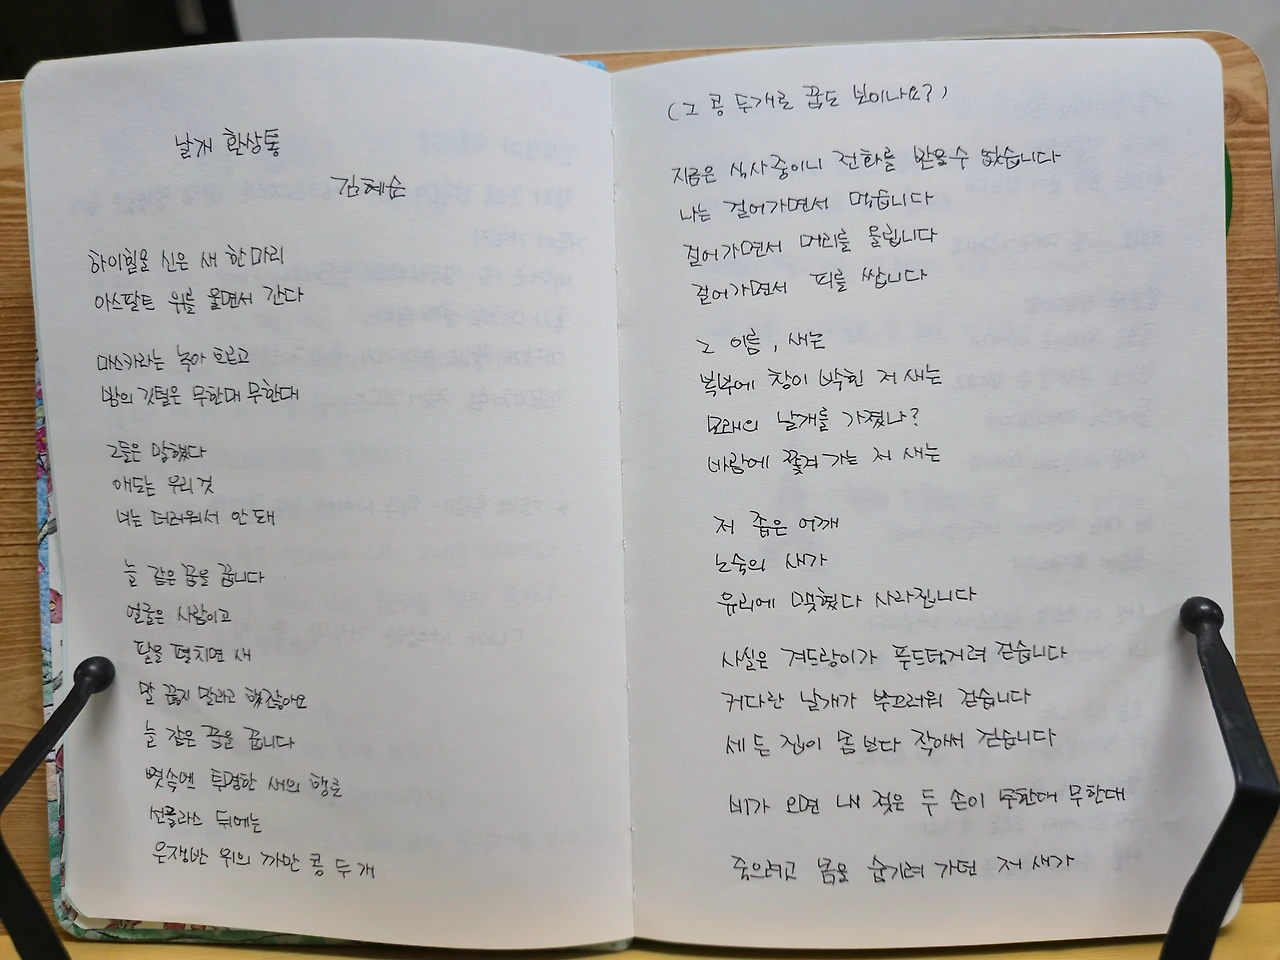 날개 환상통
김혜순
하이힐을 신은 새 한 마리
아스팔트 위를 울면서 간다
마스카라는 녹아 흐르고
밤의 깃털은 무한대 무한대
그들은 말했다
애도는 우리 것
너는 더러워서 안 돼
늘 같은 꿈을 꿉니다
얼굴은 사람이고
팔을 펼치면 새
말 끊지 말라고 했잖아요
늘 같은 꿈을 꿉니다
뼛속엔 투명한 새의 행로
선글라스 뒤에는
은쟁반 위의 까만 콩 두 개
(그 콩 두개로 꿈도 보이나요?)
지금은 식사중이니 전화를 받을 수 없습니다
나는 걸어가면서 먹습니다
걸어가면서 머리를 올립니다
걸어가면서 피를 쌉니다
그 이름, 새는
복부에 창이 박힌 저 새는
모래의 날개를 가졌나?
바람에 쫓겨 가는 저 새는
저 좁은 어깨
노숙의 새가
유리에 맺혔다 사라집니다
사실은 겨드랑이가 푸드덕거려 걷습니다
커다란 날개가 부끄러워 걷습니다
세 든 집이 몸보다 작아서 걷습니다
비가 오면 내 젖은 두 손이 무한대 무한대
죽으려고 몸을 숨기려 가던 저 새가